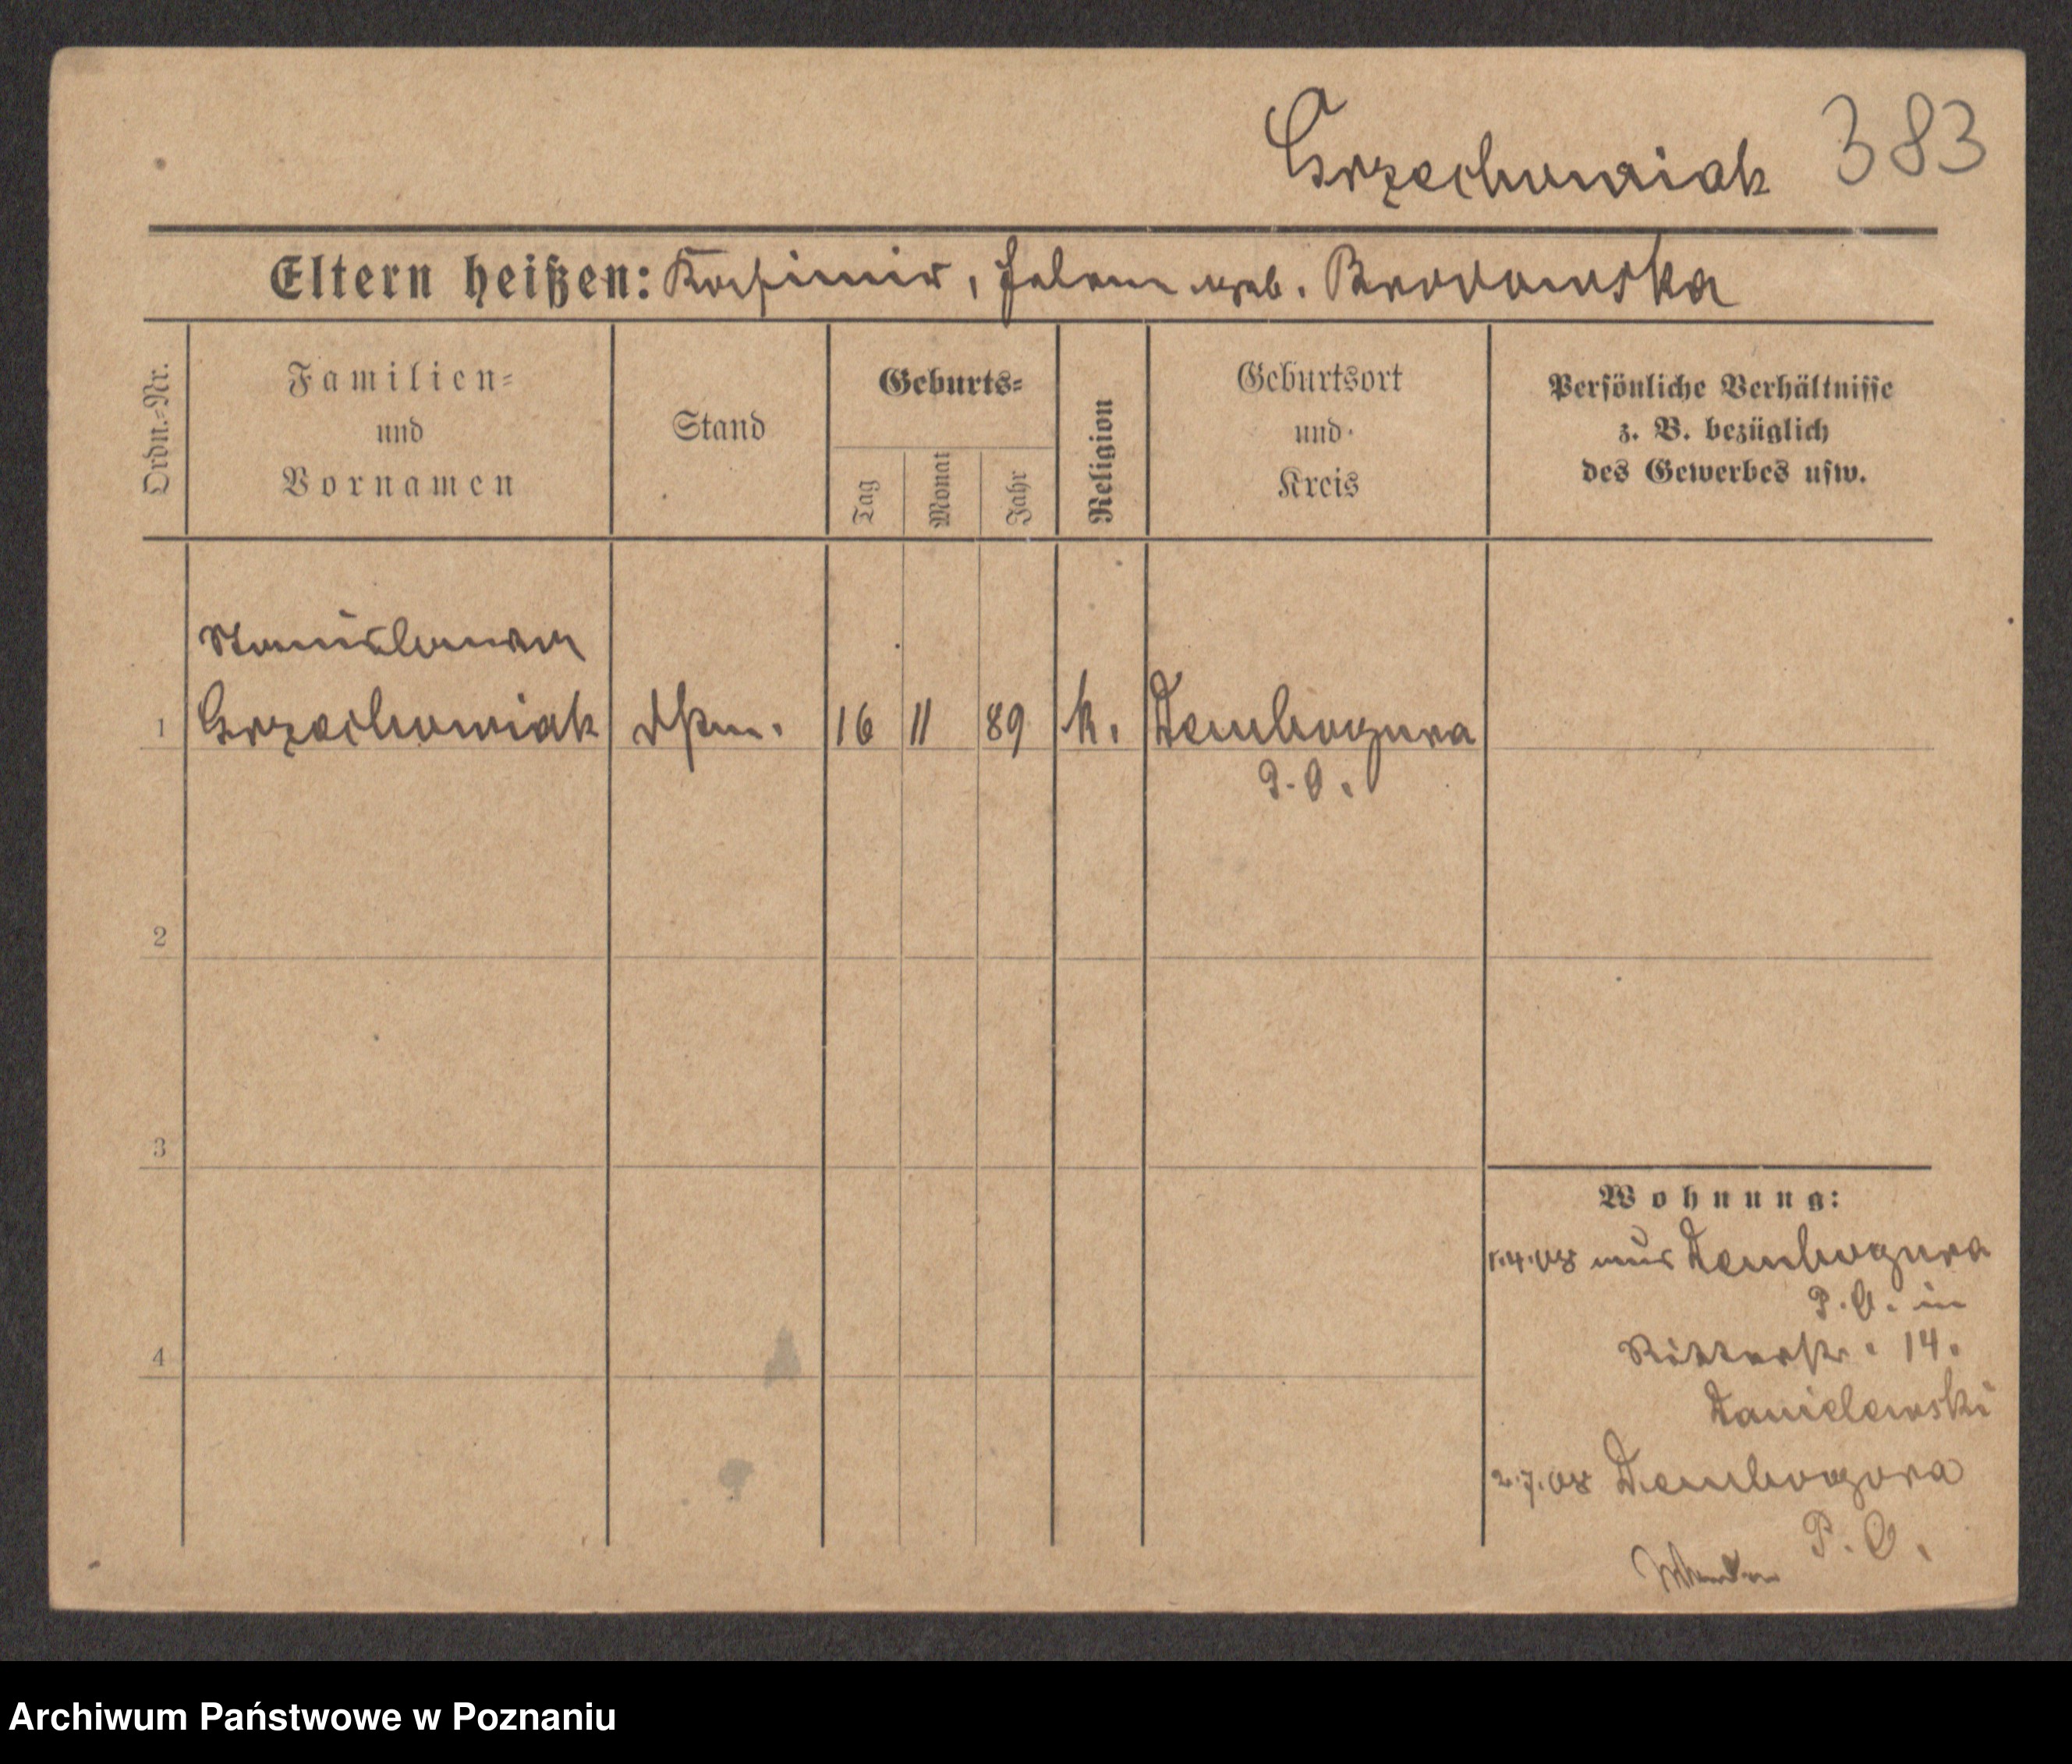 Grzechowiak 383
Eltern heißen: Kasimir, Helene geb. Brodowska
Ordn.-Nr.
Familien-
und
Vornamen
Stand
Geburts-
Tag
Monat
Jahr
Religion
Geburtsort
und
Kreis
Persönliche Verhältnisse
z. B. bezüglich
des Gewerbes usw.
Stanislawa
1 Grzechowiak 16 11 89 k. Dembogura
P.O.
2
3
4
Wohnung:
1.4.08 aus Dembogura
P.O. in
Ritterstr. 14.
Danielewski
2.7.08 Dembogora
P.O.
Archiwum Państwowe w Poznaniu